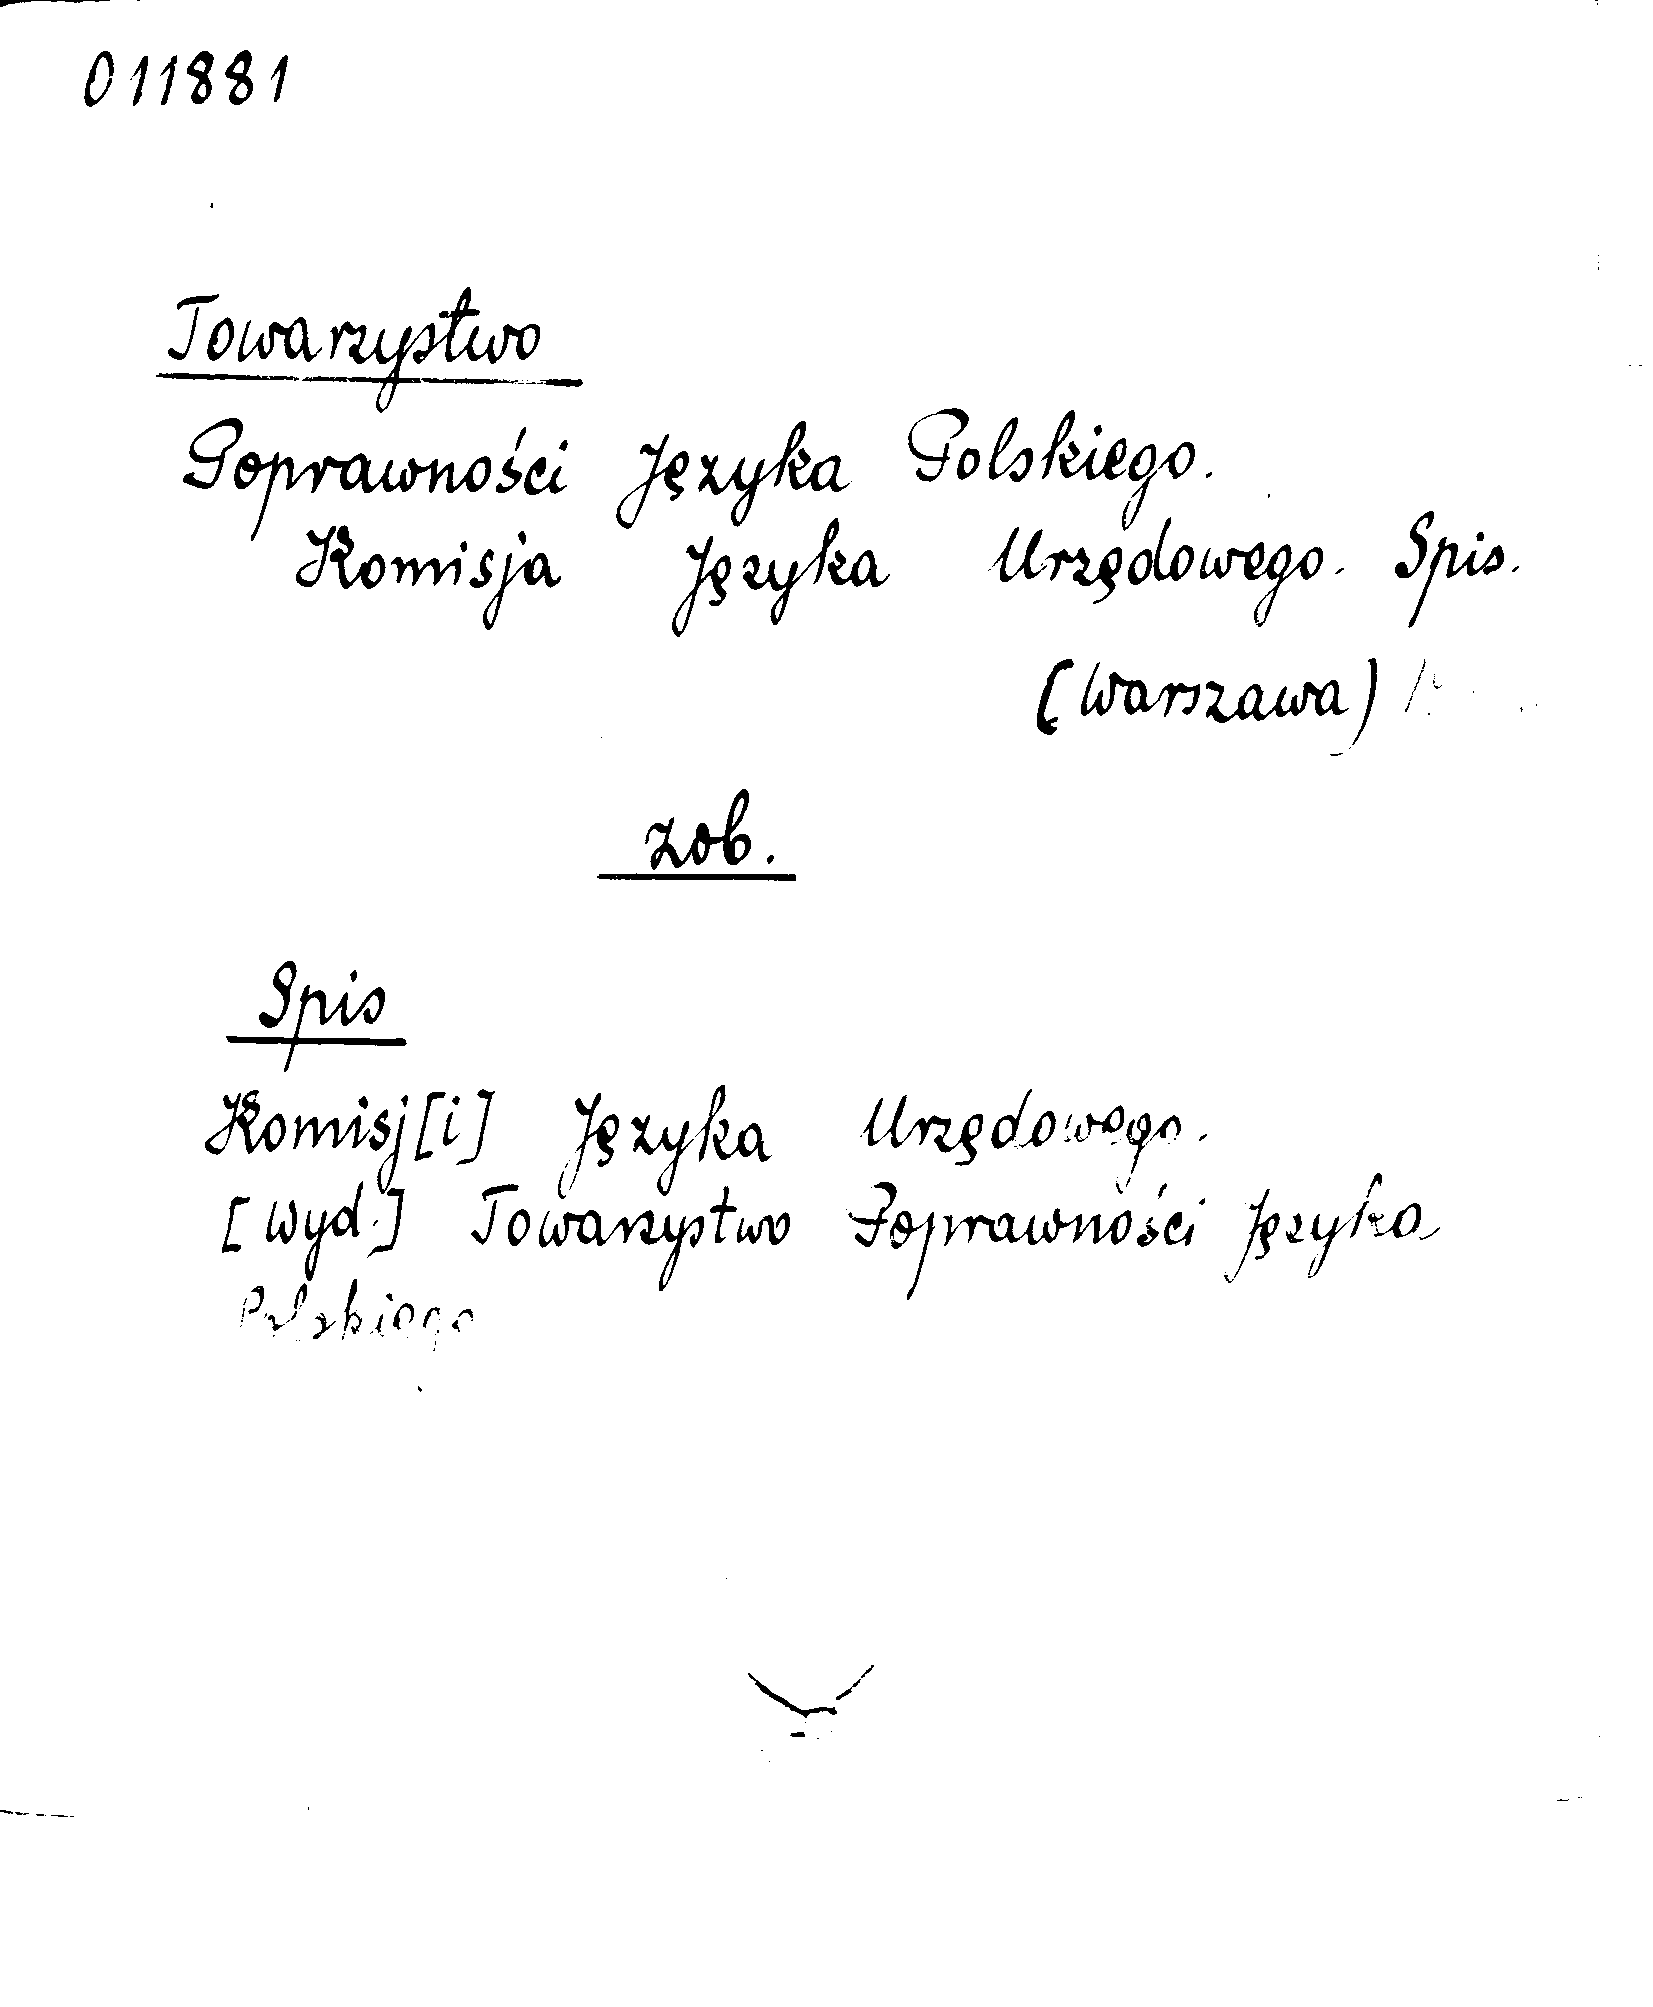 011881
Towarzystwo
Poprawności Języka Polskiego.
Komisja Języka Urzędowego. Spis.
(Warszawa)
zob.
Spis
Komisj[i] Języka Urzędowego.
[Wyd.] Towarzystwo Poprawności Języka
Polskiego